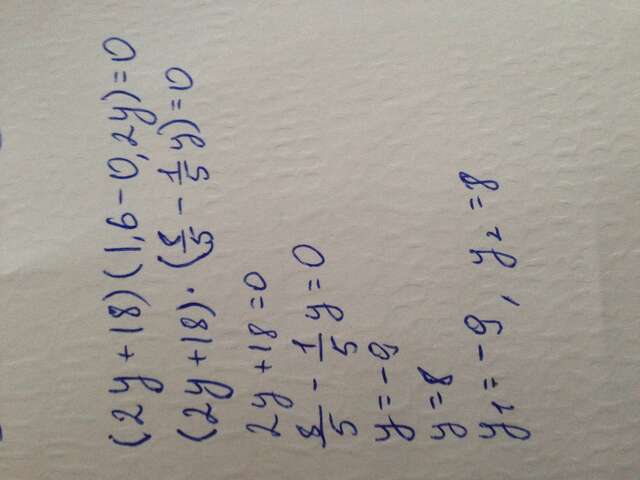 (2y+18)(1,6-0,2y)=0
(2y+18)·(8/5-1/5y)=0
2y+18=0
8/5-1/5y=0
y=-9
y=8
y₁=-9, y₂=8